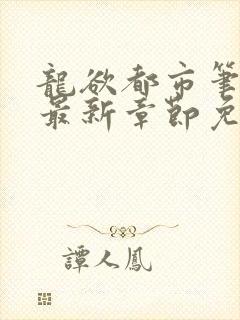 龍欲都市筆
最新章節免
譚人鳳